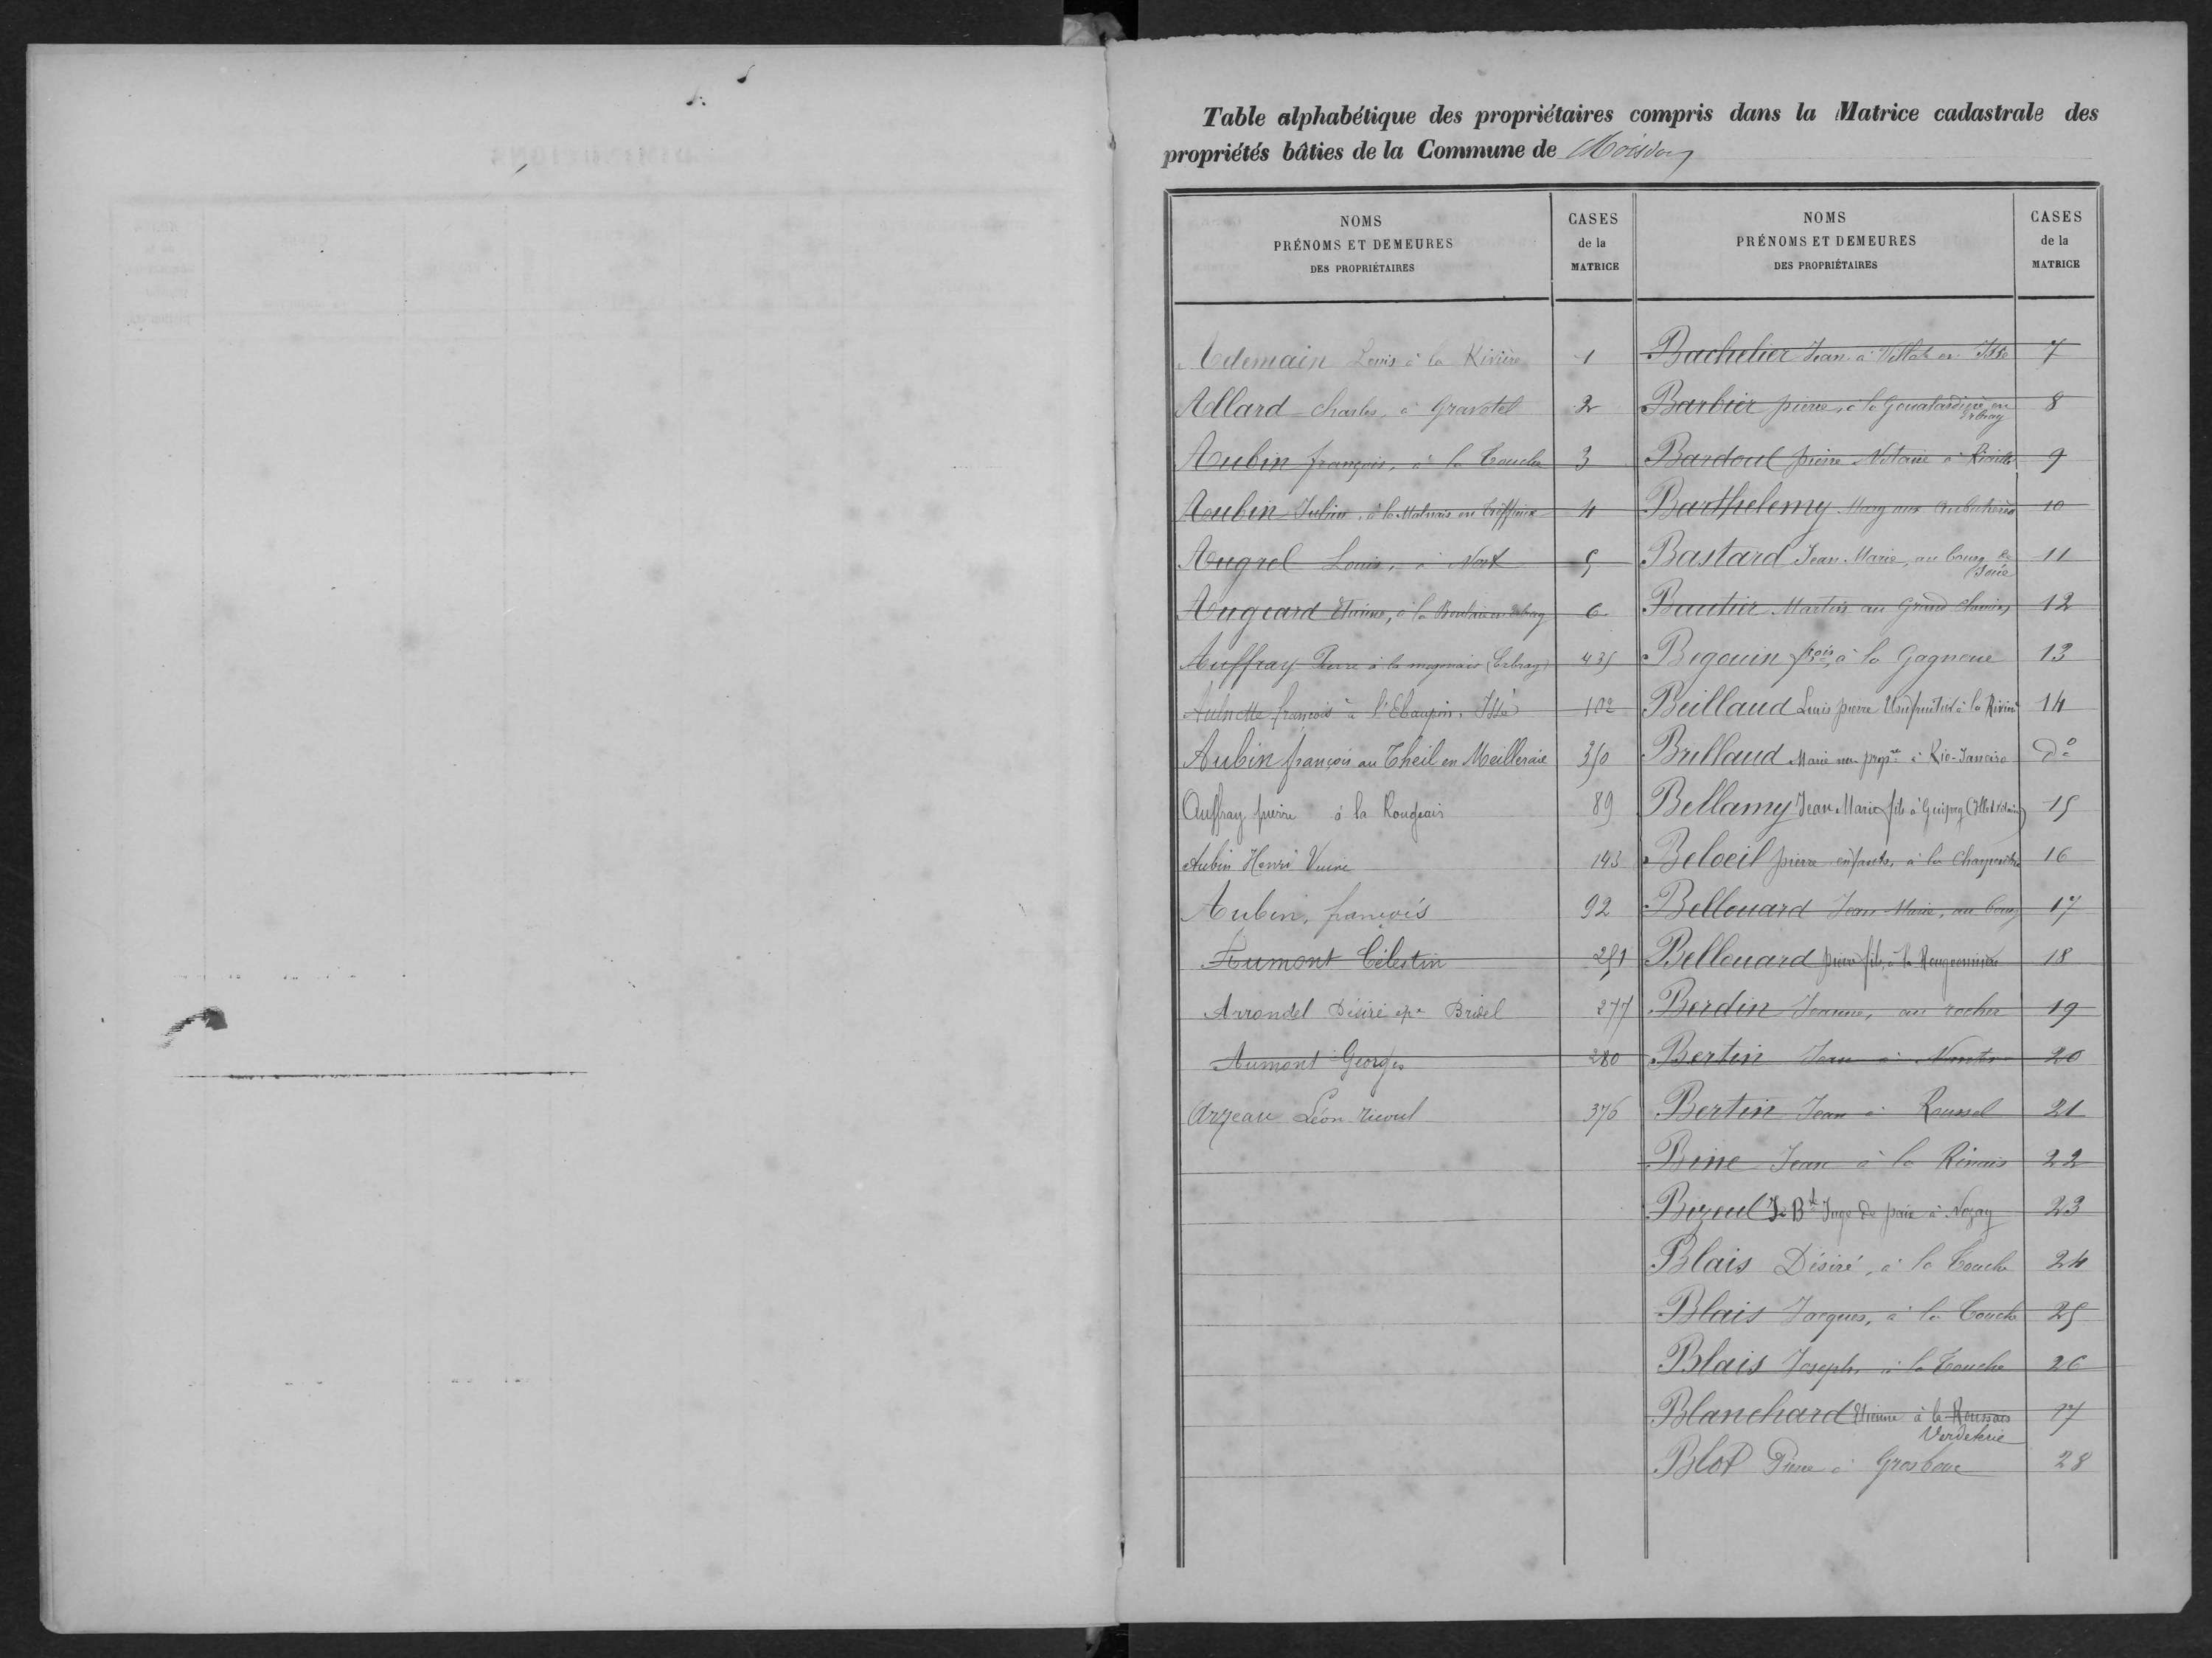 Table alphabétique des propriétaires compris dans la Matrice cadastrale des
propriétés bâties de la Commune de Moisdon
NOMS
PRÉNOMS ET DEMEURES
DES PROPRIÉTAIRES
CASES
de la
MATRICE
Ademain Louis à la Rivière 1
Allard charles, à Gravotel 2
Aubin françois, à la Touche 3
Aubin Julien, à la en Trèffieux 4
Augrel Louis, à Nort 5
Augeard Etienne, à la en Erbray 6
Auffray Pierre à la (Erbray) 435
Aulnette françois à l'Ebaupin, Issé 102
Aubin françois au Theil en Meilleraie 350
Auffray pierre à la Rougeais 89
Aubin Henri Veuve 143
Aubin, françois 92
Aumont Célestin 251
Arrondel Désiré ep. Bridel 277
Aumont Georges 280
Arzeau Léon Ricoul 376
NOMS
PRÉNOMS ET DEMEURES
DES PROPRIÉTAIRES
CASES
de la
MATRICE
Bachelier Jean à en Issé 7
Barbier pierre, à la en
Erbray 8
Bardoul pierre Notaire à Riaillé 9
Barthelemy aux 10
Bastard Jean Marie, au bourg 11
Bautier Martin au Grand chemin 12
Begouin fçois, à la Gagnerie 13
Beillaud Louis pierre Usufruitier à la Rivière 14
Brillaud Marie nue propre à Rio-Janeiro do
Bellamy Jean Marie fils à Guipry (Ille et Vilaine) 15
Beloeil pierre enfants, à la 16
Bellouard Jean Marie, au bourg 17
Bellouard pierre fils, à la 18
Berdin Jeanne, au rocher 19
Bertin Jean à Nantes 20
Bertin Jean à Roussel 21
Bine Jean à la Rinais 22
Bizeul J. Bte Juge de paix à Nozay 23
Blais Désiré, à la Touche 24
Blais Jacques, à la Touche 25
Blais Joseph, à la Touche 26
Blanchard Etienne à la Roussais 27
Verdeterie
Blot Pierre à Grosboue 28